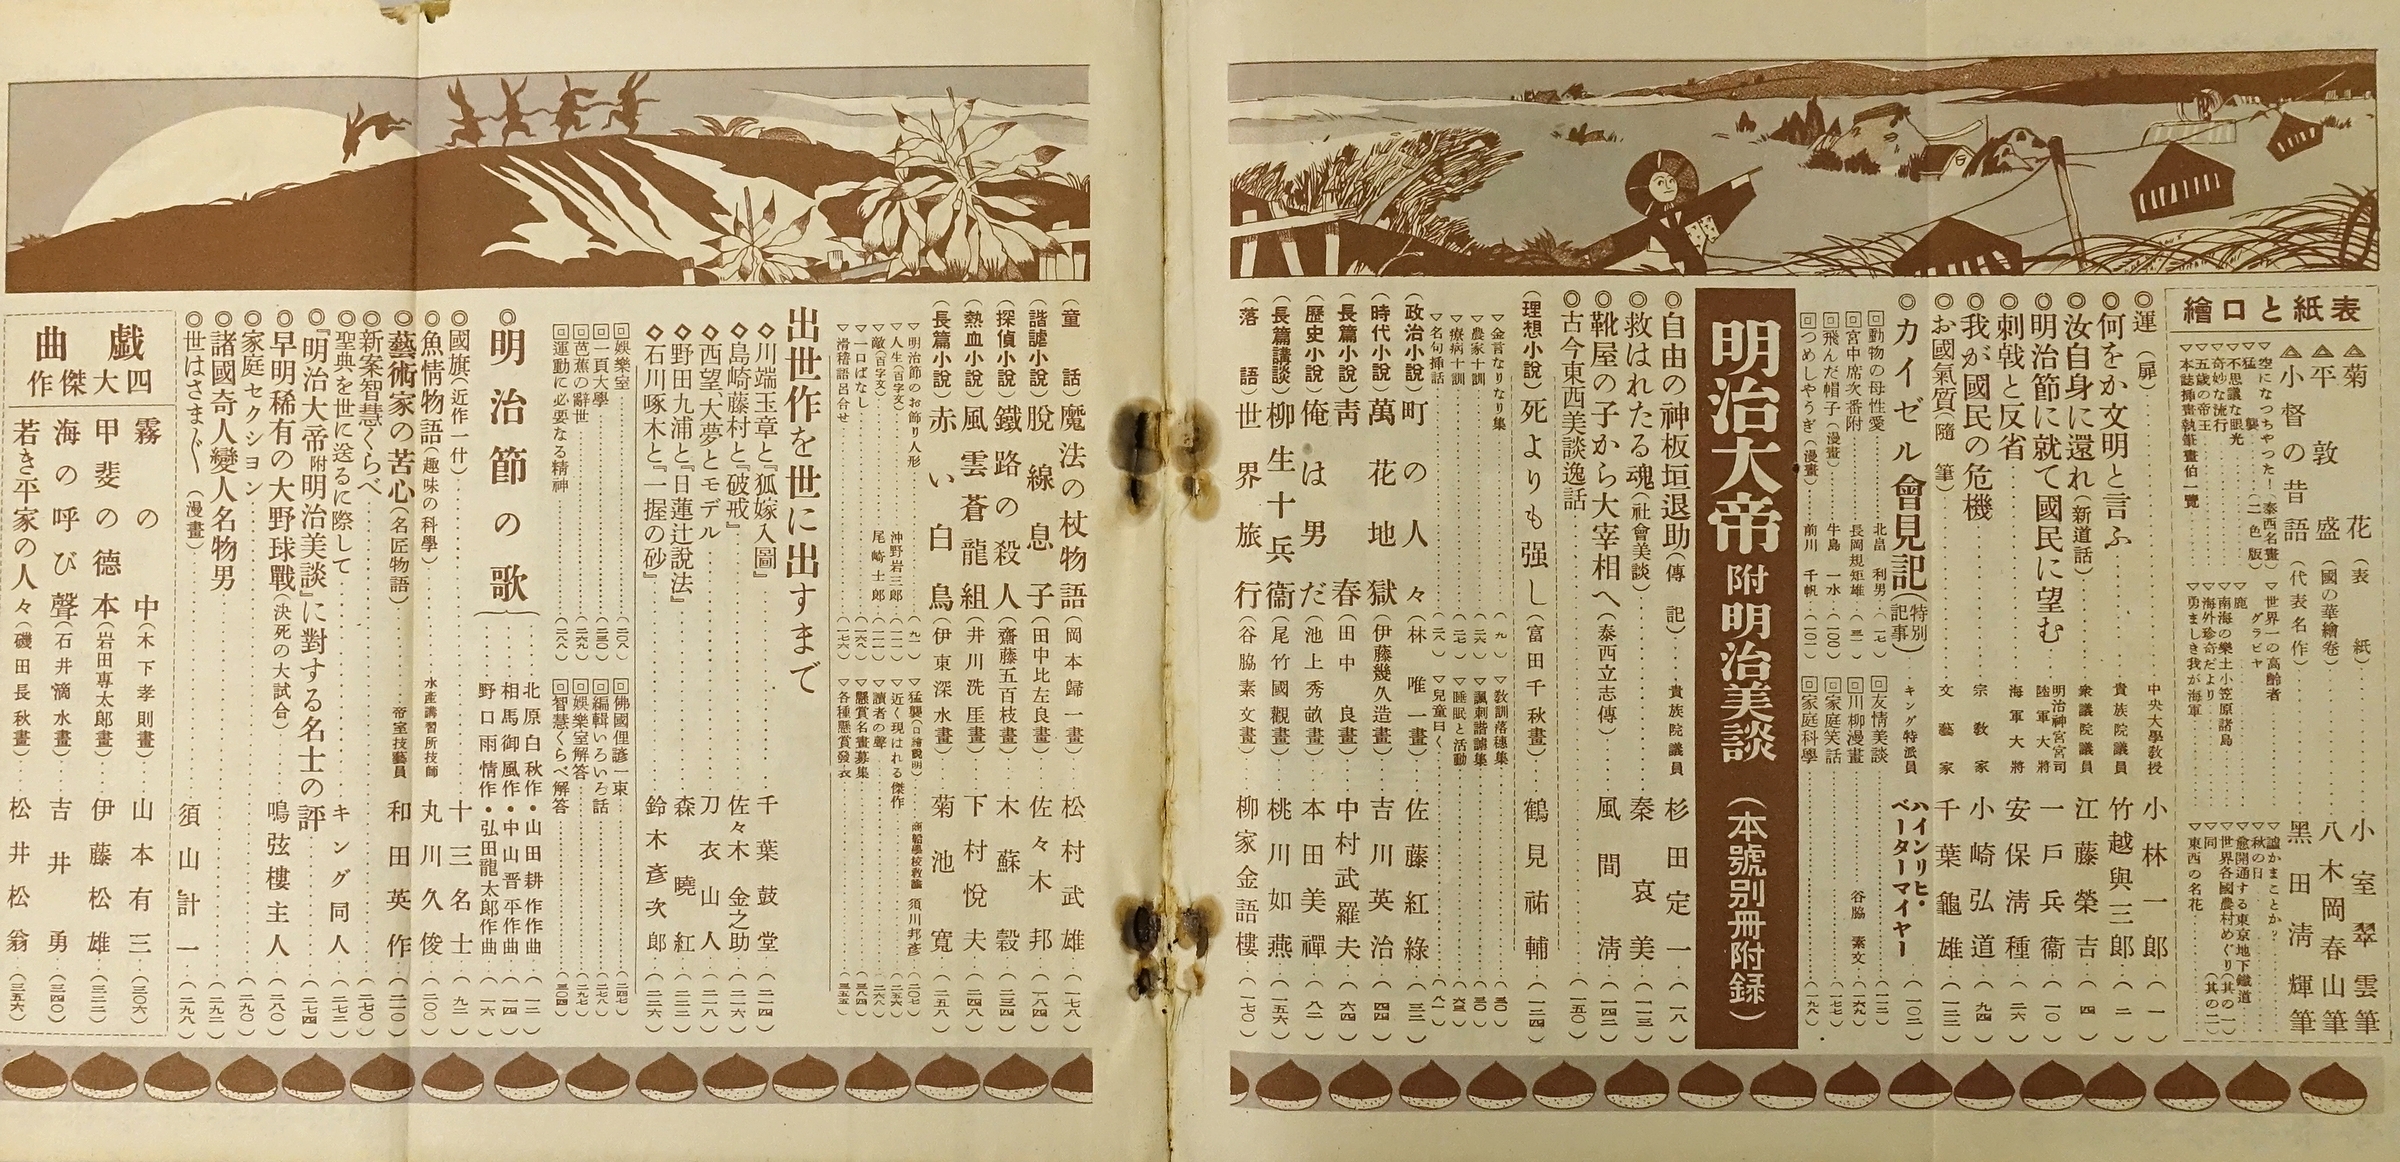 表紙と口繪
菊花(表紙)‥‥小室翠雲筆
平敦盛(國の華繪卷)‥‥八木岡春山筆
小督の昔語(代表名作)‥‥黑田淸輝筆
▽空になつちやつた!(泰西名畫)
▽猛襲‥‥(二色版)
▽不思議な眼光
▽奇妙な流行
▽五歳の帝王
▽本誌揷畫執筆畫伯一覽
▽世界一の高齡者
グラビヤ
▽鹿
▽南海の樂土小笠原諸島
▽海外珍奇だより
▽勇ましき我が海軍
▽譃かまことか?
▽秋の日
▽愈開通する東京地下鐵道
▽世界各國農村めぐり(其の一)
▽同(其の二)
▽東西の名花
◎運(扉)‥‥中央大學敎授 小林一郎(一)
◎何をか文明と言ふ‥‥貴族院議員 竹越與三郎(二)
◎汝自身に還れ(新道話)‥‥衆議院議員 江藤榮吉(四)
◎明治節に就て國民に望む‥‥明治神宮宮司 陸軍大將 一戶兵衞(一〇)
◎刺戟と反省‥‥海軍大將 安保淸種(二六)
◎我が國民の危機‥‥宗敎家 小崎弘道(九四)
◎お國氣質(隨筆)‥‥文藝家 千葉龜雄(一二二)
◎カイゼル會見記(特別記事)‥‥キング特派員 ハインリヒ・ペーターマイヤー(一〇二)
回動物の母性愛‥‥北畠利男(一七)
回宮中席次番附‥‥長岡規矩雄(三一)
回飛んだ帽子(漫畫)‥‥牛島一水(一〇〇)
回つめしやうぎ(漫畫)‥‥前川千帆(一〇一)
回友情美談‥‥(一三二)
回川柳漫畫‥‥谷脇素文(一六九)
回家庭笑話‥‥(一七七)
回家庭科學‥‥(一九八)
明治大帝 附 明治美談 (本號別冊附録)
◎自由の神板垣退助(傳記)‥‥貴族院議員 杉田定一(一八)
◎救はれたる魂(社會美談)‥‥秦哀美(一一三)
◎靴屋の子から大宰相へ(泰西立志傳)‥‥風間淸(一四二)
◎古今東西美談逸話‥‥(一五〇)
(理想小說)死よりも强し(富田千秋畫)‥‥鶴見祐輔(一二四)
▽金言なりなり集‥‥(九)
▽農家十訓‥‥(二六)
▽療病十訓‥‥(二七)
▽名句揷話‥‥(二八)
▽敎訓落穗集‥‥(三〇)
▽諷刺諧謔集‥‥(三〇)
▽睡眠と活動‥‥(六三)
▽兒童曰く‥‥(八一)
(政治小說)町の人々(林唯一畫)‥‥佐藤紅綠(三二)
(時代小說)萬花地獄(伊藤幾久造畫)‥‥吉川英治(四四)
(長篇小說)靑春(田中良畫)‥‥中村武羅夫(六四)
(歷史小說)俺は男だ(池上秀畝畫)‥‥本田美禪(八二)
(長篇講談)柳生十兵衞(尾竹國觀畫)‥‥桃川如燕(一五六)
(落語)世界旅行(谷脇素文畫)‥‥柳家金語樓(一七〇)
(童話)魔法の杖物語(岡本歸一畫)‥‥松村武雄(一七八)
(諧謔小說)脫線息子(田中比左良畫)‥‥佐々木邦(一八四)
(探偵小說)鐵路の殺人(齋藤五百枝畫)‥‥木蘇穀(二三四)
(熱血小說)風雲蒼龍組(井川洗厓畫)‥‥下村悅夫(二四八)
(長篇小說)赤い白鳥(伊東深水畫)‥‥菊池寬(二五八)
▽明治節のお飾り人形‥‥(九一)
▽人生(百字文)‥‥沖野岩三郎(一一一)
▽敵(百字文)‥‥尾崎士郎(一一一)
▽一口ばなし‥‥(一六八)
▽滑稽語呂合せ‥‥(一七六)
▽猛襲(口繪說明)‥‥商船學校敎諭 須川邦彥(二〇七)
▽近く現はれる傑作‥‥(二五六)
▽讀者の聲‥‥(二六八)
▽懸賞名畫募集‥‥(三八四)
▽各種懸賞發表‥‥(三五五)
出世作を世に出すまで
◇川端玉章と『狐嫁入圖』‥‥千葉鼓堂(二一四)
◇島崎藤村と『破戒』‥‥佐々木金之助(二一六)
◇西望、大夢とモデル‥‥刀衣山人(二一八)
◇野田九浦と『日蓮辻說法』‥‥森曉紅(二二三)
◇石川啄木と『一握の砂』‥‥鈴木彥次郎(二二六)
回娛樂室‥‥(二〇八)
回一頁大學‥‥(二三〇)
回芭蕉の辭世‥‥(二六九)
回運動に必要なる精神‥‥(二八八)
回佛國俚諺一束‥‥(二四七)
回編輯いろいろ話‥‥(二七八)
回娛樂室解答‥‥(二九七)
回智慧くらべ解答‥‥(三〇四)
◎明治節の歌
北原白秋作・山田耕作作曲(一二)
相馬御風作・中山晋平作曲(一四)
野口雨情作・弘田龍太郎作曲(一六)
◎國旗(近作一什)‥‥十三名士(九二)
◎魚情物語(趣味の科學)‥‥水產講習所技師 丸川久俊(二〇〇)
◎藝術家の苦心(名匠物語)‥‥帝室技藝員 和田英作(二一〇)
◎新案智慧くらべ‥‥(二七〇)
◎聖典を世に送るに際して‥‥キング同人(二七二)
◎『明治大帝附明治美談』に對する名士の評‥‥(二七四)
◎早明稀有の大野球戰(決死の大試合)‥‥鳴弦樓主人(二八〇)
◎家庭セクション‥‥(二九〇)
◎諸國奇人變人名物男‥‥(二九二)
◎世はさまざま(漫畫)‥‥須山計一(二九八)
戲曲
四大傑作
霧の中(木下孝則畫)‥‥山本有三(三〇六)
甲斐の德本(岩田専太郎畫)‥‥伊藤松雄(三二二)
海の呼び聲(石井滴水畫)‥‥吉井勇(三四〇)
若き平家の人々(磯田長秋畫)‥‥松井松翁(三五六)